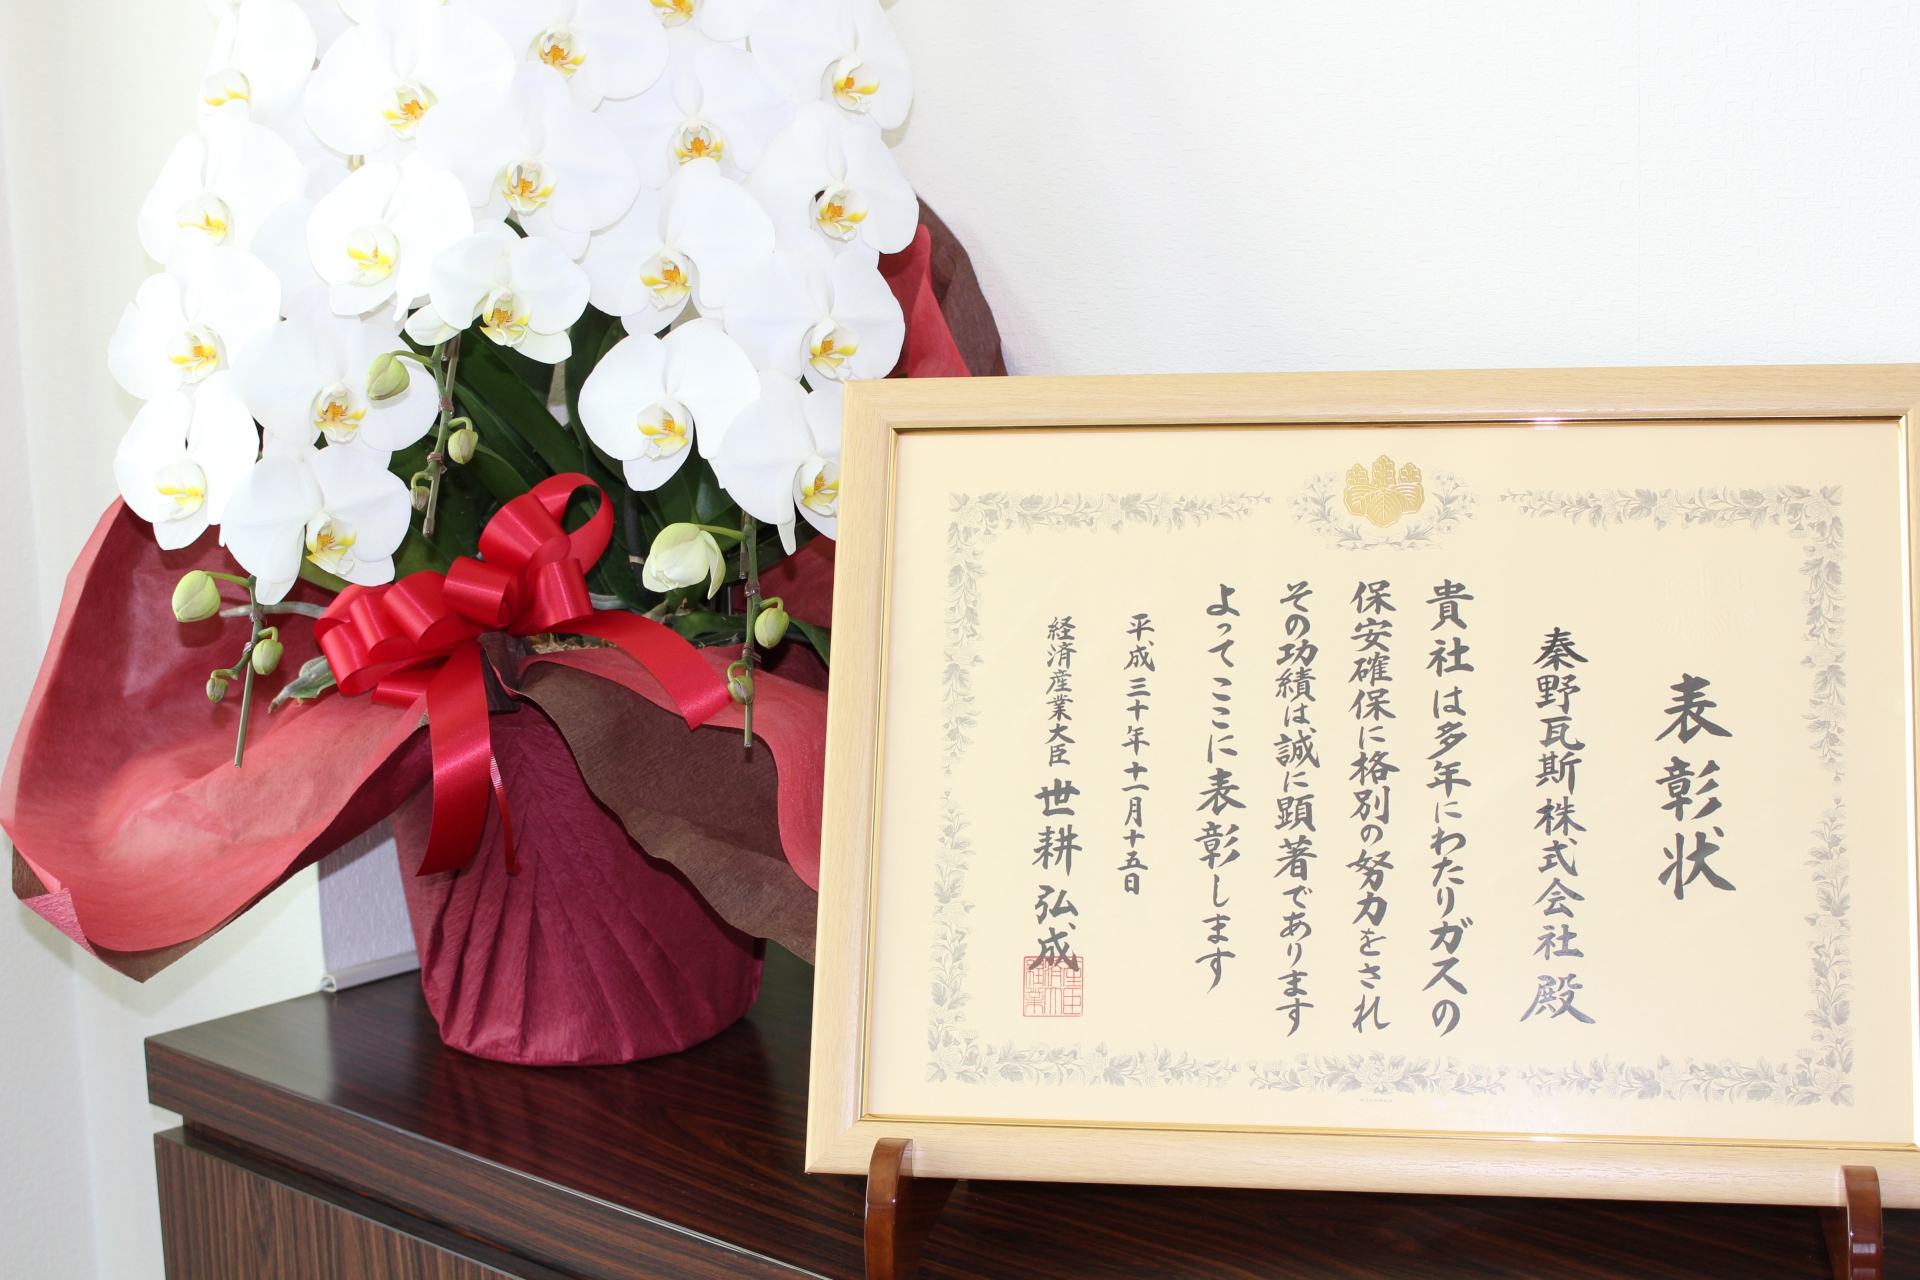 表彰状
秦野瓦斯株式会社殿
貴社は多年にわたりガスの
保安確保に格別の努力をされ
その功績は誠に顕著であります
よってここに表彰します
平成三十年十一月十五日
経済産業大臣 世耕弘成